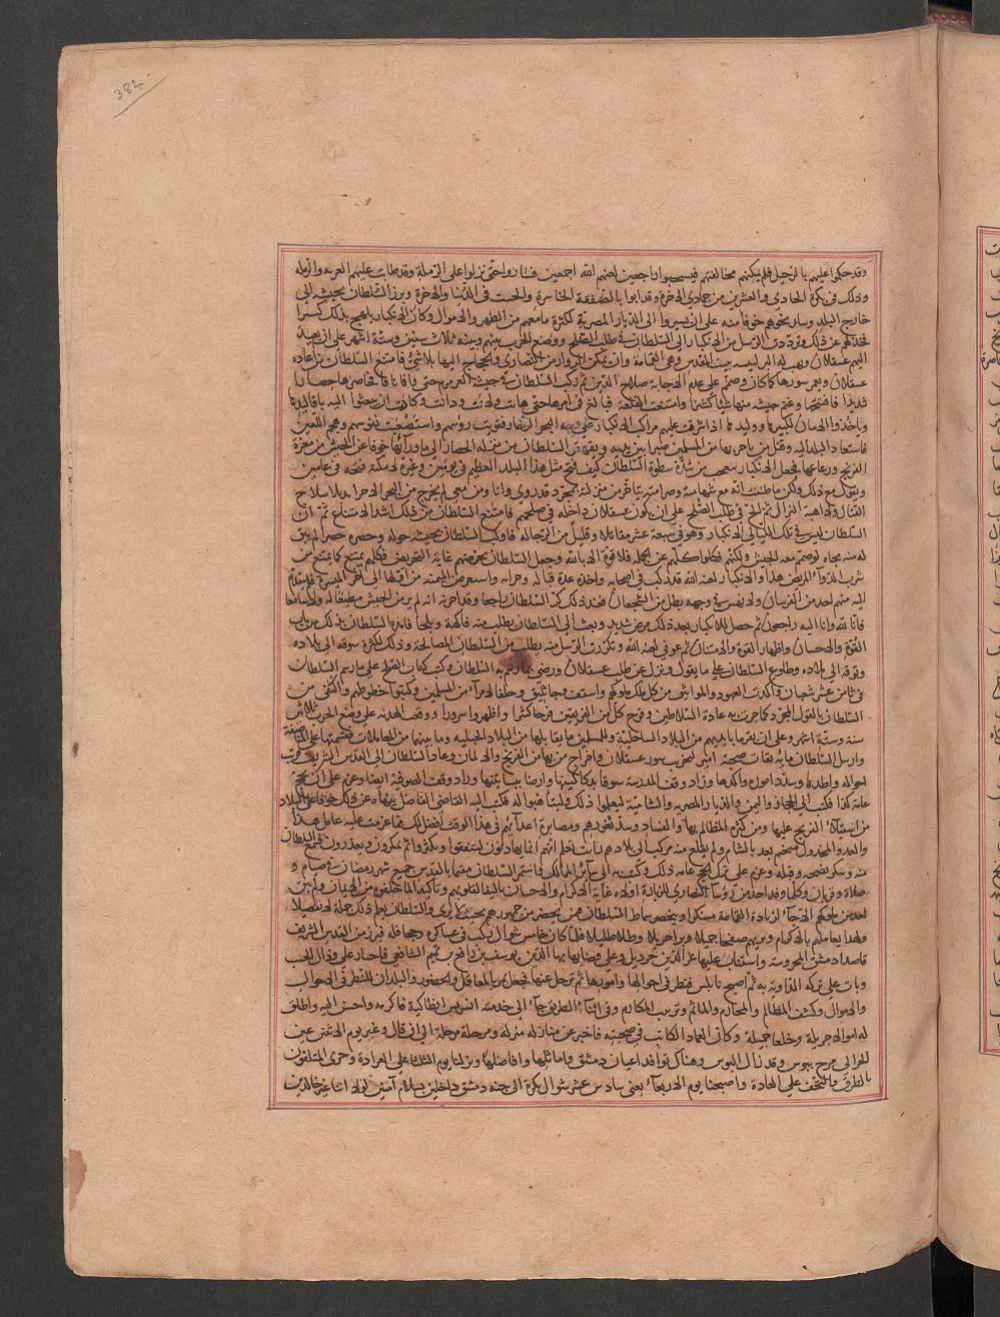 382
وقد حكموا عليهم بالرحيل فلم يمكنهم مخالفتهم فسحبوا راجعين لعنهم الله اجمعين فساروا حتى نزلوا على الرملة وقد طالت عليهم الغربه والرمله
وذلك في بكرة الحادي والعشرين من جمادي الاخرة وقد ابوا بالصفقة الخاسرة والخيبة في الدنيا والاخرة وبرز السلطان بجيشه الى
خارج البلد وسار نحوهم خوفا منه على ان يسيروا الى الديار المصرية لكثرة ما معهم من الظهر والاموال وكان الانكتار يلهج بذلك كثيرا
فخذلهم عن ذلك وترددت الرسل من الانكتار الى السلطان في طلب الصلح ووضع الحرب بينهم وبينه ثلاث سنين وستة اشهر على ان يعيد
اليهم عسقلان ويهب له كنيسة بيت المقدس وهي القمامة وان يمكن الزوار من النصارى والحجاج اليها بلا شئ فامتنع السلطان من اعادة
عسقلان ويعمر سورها كما كان وصمم على عدم الاجابة صلاح الدين ثم ركب السلطان في جيشه العرمرم حتى وافا يافا فحاصرها حصارا
شديدا فافتتحها وغنم جيشه منها شيا كثيرا وامتنعت القلعة فبالغ في امرها حتى هانت ولانت ودانت وكادت ان يبعثوا اليه باقاليدها
وياخذوا الامان لكبيرها ووليدها اذ اشرفت عليهم مراكب الانكتار على وجه البحر الزخار فقويت رؤسهم واستصعبت نفوسهم وهجم اللعين
فاستعاد البلد اليه وقتل من تاخر بها من المسلمين صبرا بين يديه وتقهقر السلطان من منزلة الحصار الى ما ورآئها خوفا على الجيش من معرة
الفرنج ورعاعها فجعل الانكتار يتعجب من شدة سطوة السلطان كيف فتح مثل هذا البلد العظيم في يومين وغيره لا يمكنه فتحه في عامين
ويقول مع ذلك ولكن ما ظننت انه مع شهامته وصرامته يتاخر من منزلته بمجرد قدومي وانا ومن معي لم نخرج من البحر الا جرايد بلا سلاح
القتال ولا اهبة النزال ثم الح في طلب الصلح على ان يكون عسقلان داخلة في صلحهم فامتنع السلطان من ذلك اشد الامتناع ثم ان
السلطان كبس في تلك الليالي الانكتار وهو في سبعة عشر مقاتلا وقليل من الرجاله فاوكب السلطان بجيشه حوله وحصره حصرا لم يبق
له منه نجاه لو صمم معه الجيش ولكنهم نكلوا كلهم عن الحمله فلا قوة الا بالله وجعل السلطان يحرضهم غاية التحريض فكلهم يمتنع كما يمتنع من
شرب الدوآء المريض هذا والانكتار لعنه الله قد ركب في اصحابه واخذ عدة قتاله وحرابه واستعرض الميمنه من اولها الى اخر الميسره فلم يتقدم
اليه منهم احد من الفرسان ولا نهس في وجهه بطل من الشجعان فعند ذلك كر السلطان راجعا وقد احزنه انه لم ير من الجيش مطيعا له ولا سامعا
فانا لله وانا اليه راجعون ثم حصل للانكتار بعد ذلك مرض شديد وبعث الى السلطان يطلب منه فاكهة وثلجا فامده السلطان بذلك من باب
الفتوة والاحسان واظهار القوة والامتنان ثم عوفي لعنه الله وتكررت الرسل منه يطلب من السلطان المصالحة وذلك لكثرة شوقه الى بلاده
وتوقه الى ملاده وطاوع السلطان على ما يقول ونزل عن طلب عسقلان ورضي بما رسم به السلطان وكتب كتاب الصلح على ما رسم السلطان
في ثامن عشر شعبان واكدت العهود والمواثيق من كل ملك من ملوكهم واستعنف جاثليق وحلف الامرآء من المسلمين وكتبوا خطوطهم واكتفى من
السلطان بالقول المجرد كما جرت به عادة السلاطين وفرح كل من الفريقين فرحا كثيرا واظهروا سرورا ووقعت الهدنة على وضع الحرب ثلاث
سنة وستة اشهر وعلى ان يقرهم على ما بايديهم من البلاد الساحلية وللمسلمين ما يقابلها من البلاد الجبليه وما بينهما من المعاملات يقسمها على المناصفة
وارسل السلطان ماية نقاب صحبة امير لتخريب سور عسقلان واخراج من بها من الفرنج والالمان وعاد السلطان الى القدس الشريف فرتب
احواله واطدها وسدد اموره واكدها وزاد وقف المدرسة سوقا بدكاكينها وارضا ببساتينها وزاد وقف الصوفية ايضا وعزم على ان يحج
عامه هذا فكتب الى الحجاز واليمن والديار المصريه والشامية ليعلموا ذلك وليتاهبوا له فكتب اليه القاضي الفاضل ينهاه عن ذلك خوفا على البلاد
من استيلآء الفرنج عليها ومن كثرة المظالم بها والفساد وسد ثغورهم ومصابرة اعدآئهم في هذا الوقت افضل لك مما عزمت عليه عامك هذا
والعدو المخذول مخيم بعد بالشام ولم يقلع منه مركب الى بلادهم وانت تعلم انهم انما يهادنون ليتقووا ويكثروا ثم يمكرون ويغدرون فسمع السلطان
منه وشكر نصحه وقبله وعزم على ترك الحج عامه ذلك وكتب به الى سائر الممالك واستمر السلطان مقيما بالقدس جميع شهر رمضان في صيام و
صلاة وقران وكلما وفد احد من رؤسآء النصارى للزيارة اولاه غاية الاكرام والاحسان تاليفا لقلوبهم وتاكيدا لما حلفوه من الايمان ولم يبق
احد من ملوكهم الا جآء لزيارة القمامة متنكرا ويحضر سماط السلطان فيمن يحضر من جمهورهم بحيث لا يرى والسلطان يعلم ذلك جملة لا تفصيلا
ولهذا يعاملهم بالاكرام ويريهم صفحا جميلا وبرا جزيلا وظلا ظليلا فلما كان خامس شوال ركب في عساكره وجحافله فبرز من القدس الشريف
قاصدا دمشق المحروسة واستناب عليها عز الدين جرديك وعلى قضايها بها الدين يوسف بن رافع بن تميم الشافعي فاجتاز على وادي الجيب
وبات على بركه الداويه ثم اصبح نابلس فنظر في احوالها وامورها ثم ترحل عنها فجعل يمر بالمعاقل والحصون والبلدان للنظر في الاحوال
والاموال وكشف المظالم والمحارم والماثم وترتيب المكارم وفي اثنآء الطريق جآء الى خدمته ابرنس انطاكية فاكرمه واحسن اليه واطلق
له اموالا جزيلة وخلعا جميلة وكان العماد الكاتب في صحبته فاخبر عن منازله منزله ومرحلة مرحلة الى ان قال وعبر يوم الاثنين عين
الحر الى مرج يبوس وقد زال البوس وهناك توافد اعيان دمشق واماثلها وافاضلها ونزلنا يوم الثلاثا على العرادة وجرى المتلقون
بالطرف والتحف على العادة واصبحنا يوم الاربعآء يعني سادس عشر شوال بكرة الى جنة دمشق داخلين بسلام آمنين لولا اننا غير خالدين